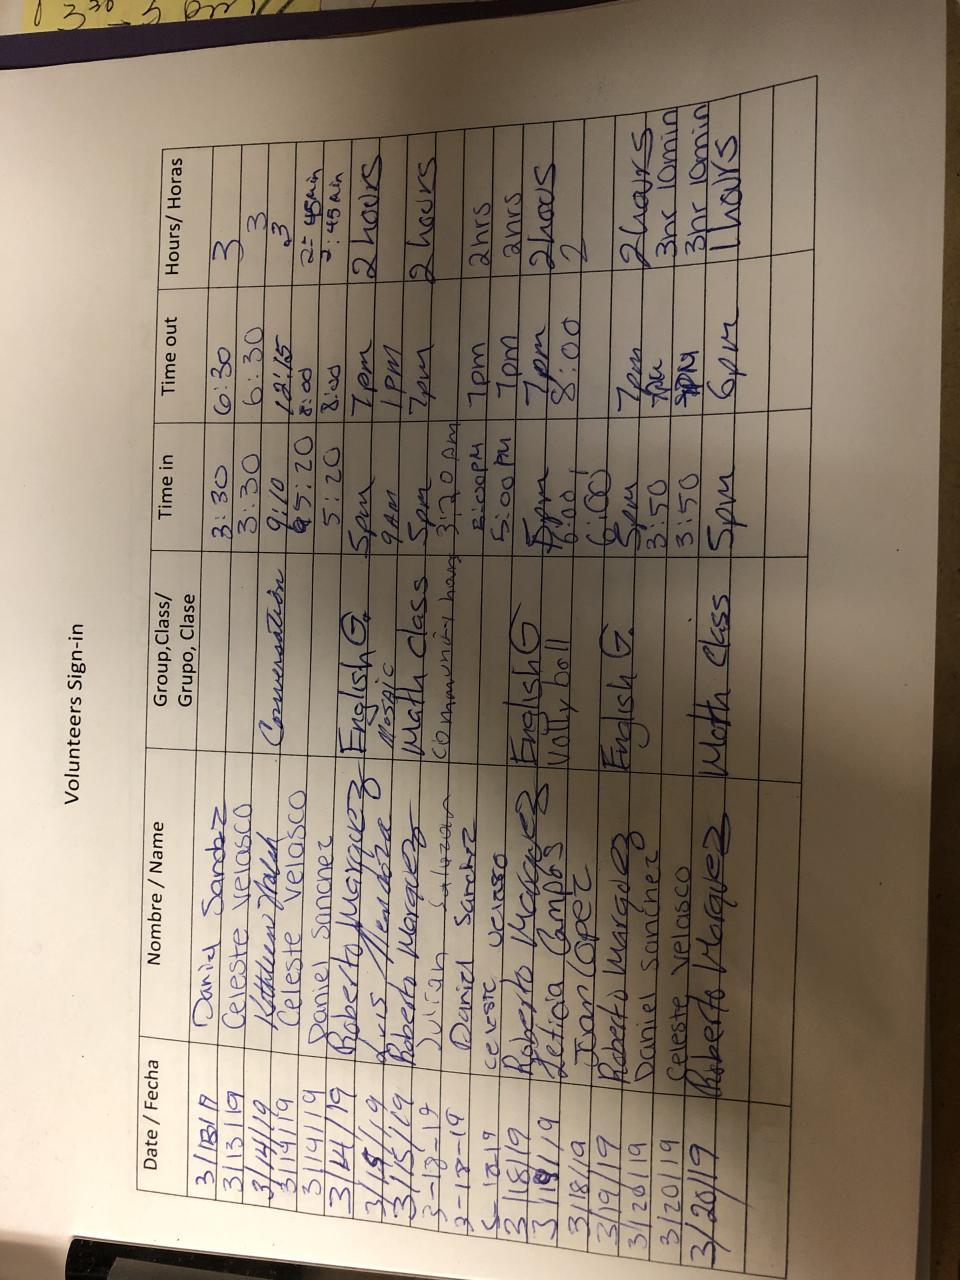 3:30 - 5 pm
Volunteers Sign-in
Date / Fecha Nombre / Name Group,Class/ Grupo, Clase Time in Time out Hours/ Horas
3/13/19 Daniel Sanchez 3:30 6:30 3
3/13/19 Celeste Velasco 3:30 6:30 3
3/14/19 Kathleen Conversation 9:10 12:15 3
3/14/19 Celeste Velasco 5:20 8:00 2:45min
3/14/19 Daniel Sanchez 5:20 8:00 2:45min
3/14/19 Roberto Marquez English G. 5pm 7pm 2 hours
3/15/19 Luis Mendoza Mosaic 9AM 1PM
3/15/19 Roberto Marquez Math class 5pm 7pm 2 hours
3-18-19 Julian Salazar 3:20 pm
3-18-19 Daniel Sanchez 5:00PM 7pm 2hrs
18-19 celeste velasco 5:00 PM 7pm 2hrs
3/18/19 Roberto Marquez English G 5pm 7pm 2 hours
3/18/19 Leticia Campos Vally boll 6:00 8:00 2
3/18/19 Juan Lopez 6:00
3/19/19 Roberto Marquez English G. 5pm 7pm 2 hours
3/20/19 Daniel Sanchez 3:50 7PM 3hr 10min
3/20/19 Celeste Velasco 3:50 7PM 3hr 10min
3/20/19 Roberto Marquez Math Class 5pm 6pm 1 hours